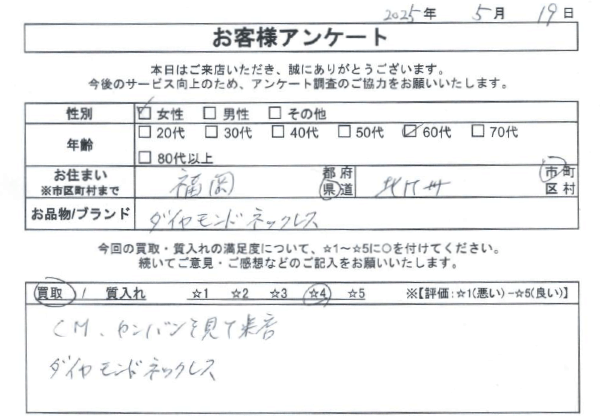 2025年 5月 19日
お客様アンケート
本日はご来店いただき、誠にありがとうございます。
今後のサービス向上のため、アンケート調査のご協力をお願いいたします。
性別 ☑ 女性 □ 男性 □ その他
年齢 □ 20代 □ 30代 □ 40代 □ 50代 ☑ 60代 □ 70代
□ 80代以上
お住まい 福岡 都府 県道 北九州 市町 区村
※市区町村まで
お品物/ブランド ダイヤモンドネックレス
今回の買取・質入れの満足度について、☆1～☆5に○を付けてください。
続いてご意見・ご感想などのご記入をお願いいたします。
買取 / 質入れ ☆1 ☆2 ☆3 ☆4 ☆5 ※【評価：☆1(悪い)−☆5(良い)】
CM、カンバンを見て来店
ダイヤモンドネックレス